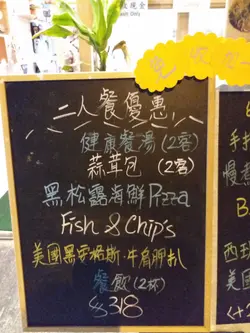 二人餐優惠
健康餐湯 (2客)
蒜茸包 (2客)
黑松露海鮮Pizza
Fish & Chip's
美國黑安格斯牛肩胛扒
餐飲 (2杯)
$318
免
手打
慢煮
B
西班